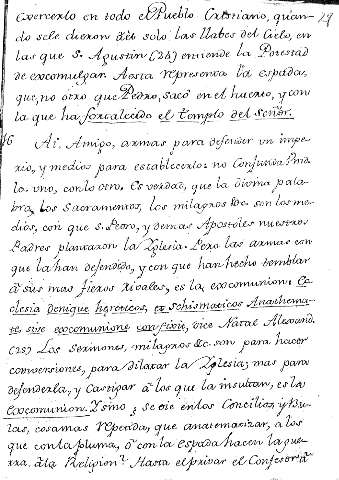 exercerlo en todo el Pueblo Cristiano, quan- 29
do se le dieron a el solo las llabes del Cielo, en
las que S. Agustin (24) entiende la Potestad
de excomulgar. Aesta representa la espada,
que, no otro que Pedro, sacó en el huerto, y con
la que ha fortalecido el templo del Señor.
16 Ai, Amigo, armas para defender un impe-
rio, y medios para establecerlo: no confunda Vmd
lo uno, con lo otro. Es verdad, que la divina pala-
bra, los Sacramentos, los milagros &c. son los me-
dios, con que S. Pedro, y demas Apostoles nuestros
Padres plantaron la Yglesia. Pero las armas con
que la han defendido, y con que han hecho temblar
a sus mas fieros rivales, es la excomunion: Ec-
clesia denique hereticos, et schismaticos Anathema-
te, sive excomunione confixit, dice Natal Alexand.
(25) Los Sermones, milagros &c. son para hacer
conversiones, para dilatar la Yglesia; mas para
defenderla, y castigar a los que la insultan, es la
excomunion. Y sino, se vee en los Concilios, y Bu-
las, cosa mas repetida, que anatematizar, a los
que con la pluma, ó con la espada hacen la gue-
rra a la Religion? Hasta el privar el Confesor a